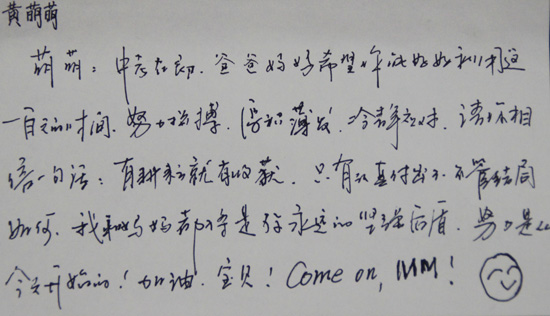 黄萌萌
萌萌：中考在即，爸爸妈妈希望你能好好利用这
一百天的时间，努力拼搏，厚积薄发，冷静应对，请你相
信一句话：有耕耘就有收获，只有认真付出了，不管结局
如何，我和妈妈都是你永远的坚强后盾，努力是从
今天开始的！加油，宝贝！Come on, MM！